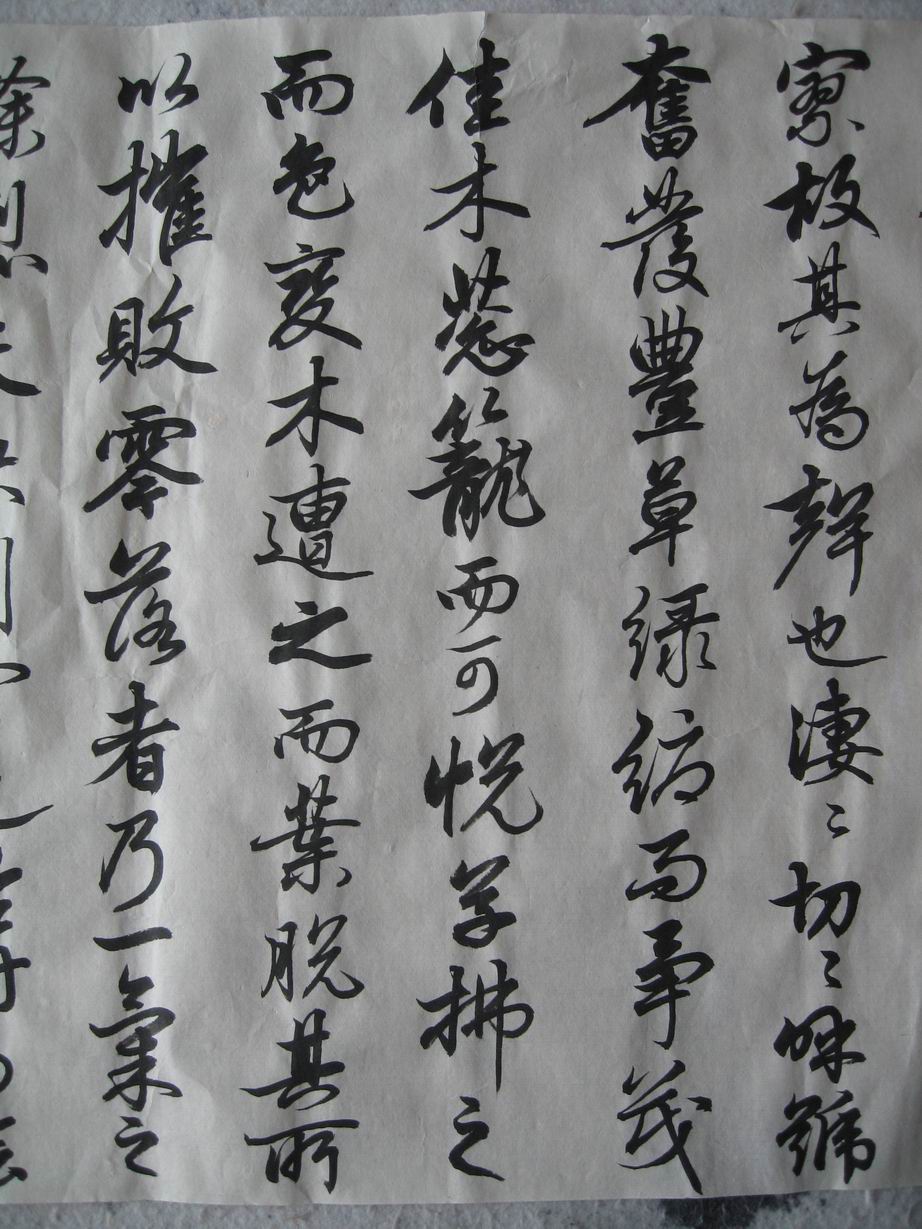 寥故其為聲也淒〻切〻呼號
奮發豐草綠縟而爭茂
佳木葱籠而可悅草拂之
而色變木遭之而葉脫其所
以摧敗零落者乃一氣之
餘烈